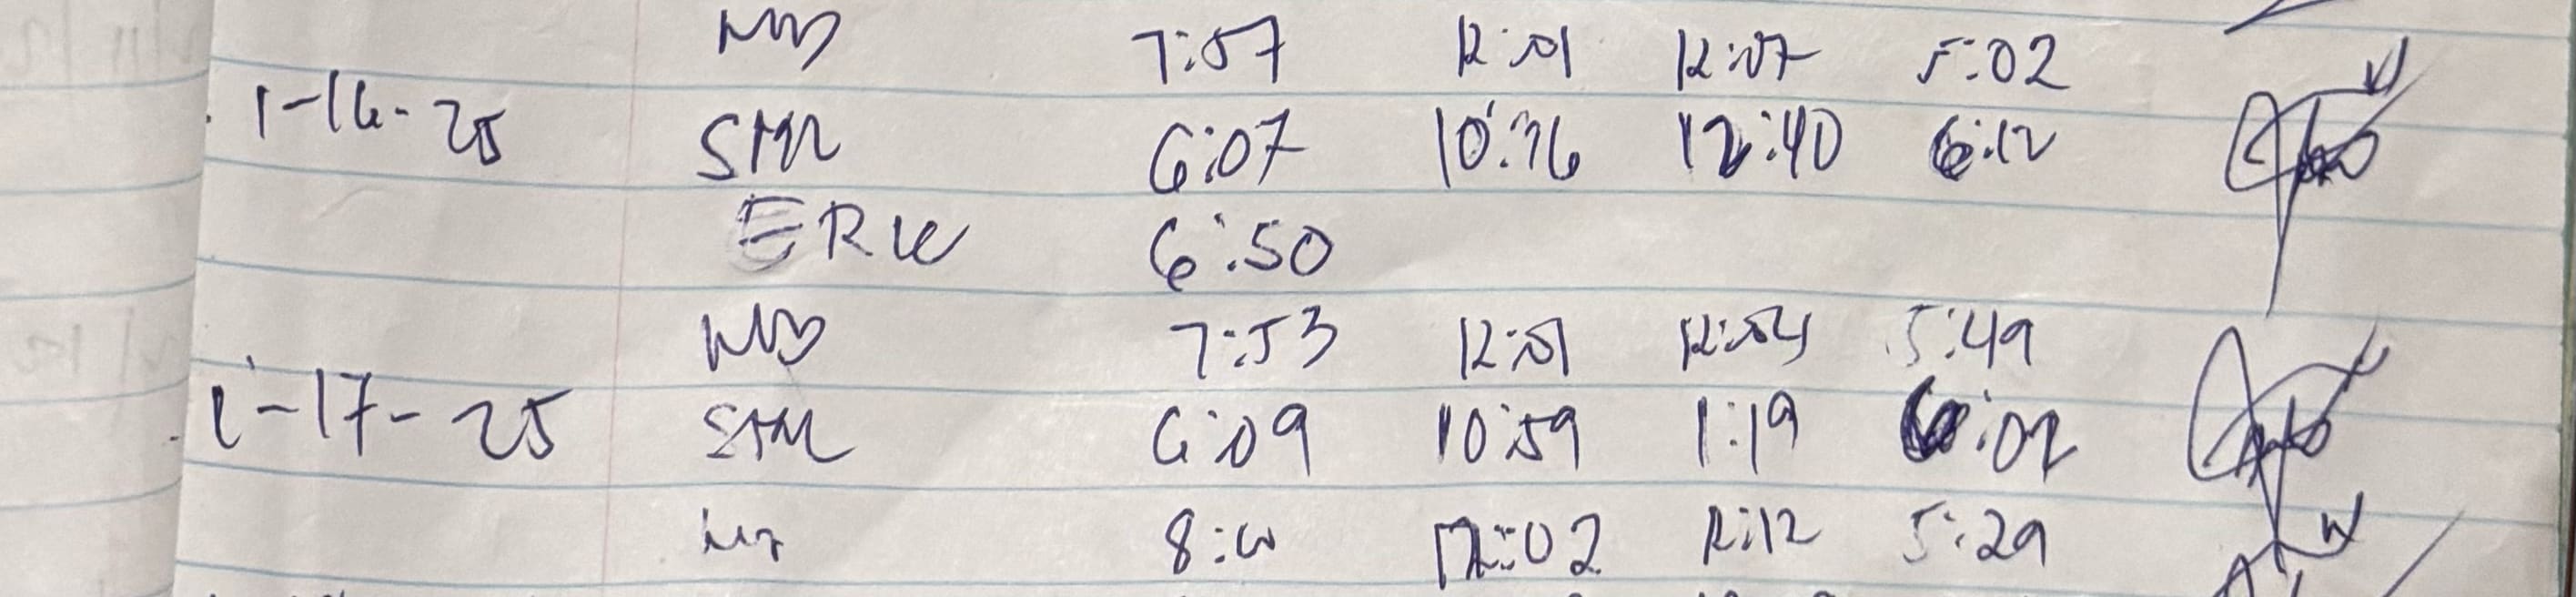 7:57 12:01 12:07 5:02
1-16-25 SML 6:07 10:36 12:40 6:12
ERW 6:50
7:53 12:51 12:54 5:49
1-17-25 SML 6:09 10:59 1:19 6:02
8:00 12:02 12:12 5:29